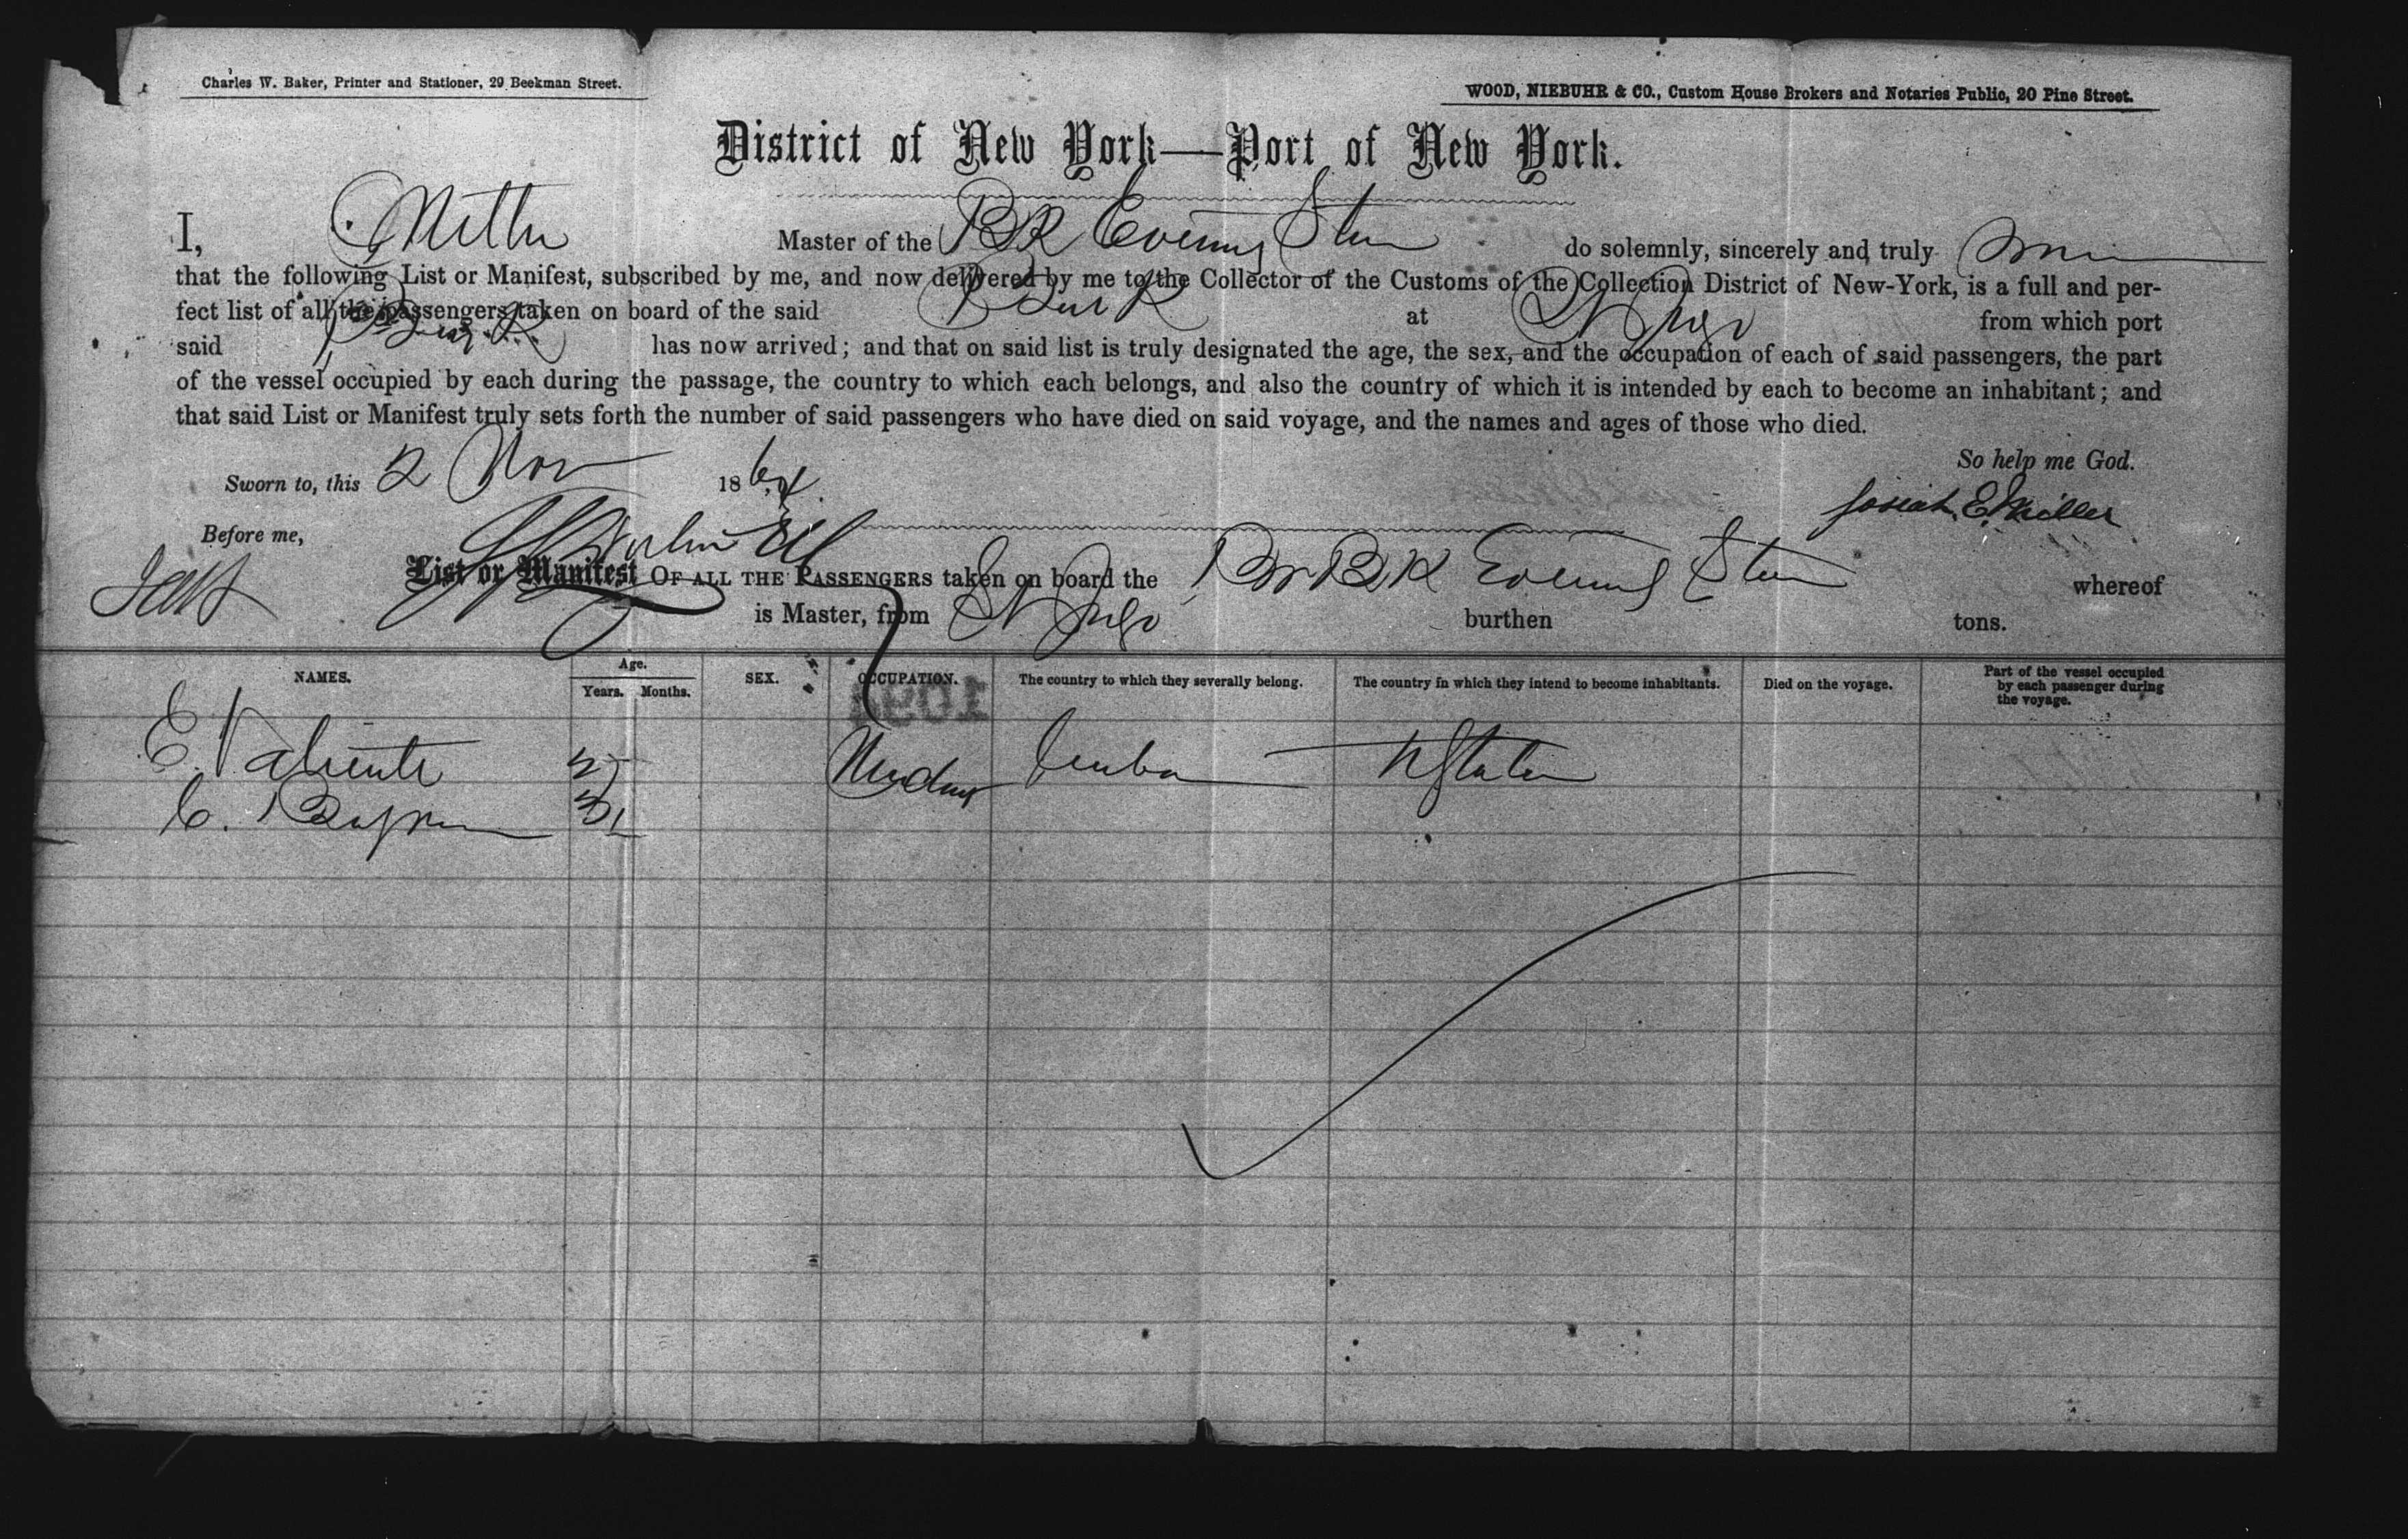 Charles W. Baker, Printer and Stationer, 29 Beekman Street.
WOOD, NIEBUHR & CO., Custom House Brokers and Notaries Public, 20 Pine Street.
District of New York—Port of New York.
I, Miller Master of the BK Evening Star do solemnly, sincerely and truly
that the following List or Manifest, subscribed by me, and now delivered by me to the Collector of the Customs of the Collection District of New-York, is a full and per-
fect list of all the passengers taken on board of the said Bark at St Jago from which port
said Bark has now arrived; and that on said list is truly designated the age, the sex, and the occupation of each of said passengers, the part
of the vessel occupied by each during the passage, the country to which each belongs, and also the country of which it is intended by each to become an inhabitant; and
that said List or Manifest truly sets forth the number of said passengers who have died on said voyage, and the names and ages of those who died.
So help me God.
Sworn to, this 2 Nov 1864.
Josiah E. Miller
Before me,
List or Manifest OF ALL THE PASSENGERS taken on board the Br BK Evening Star whereof
is Master, from St Jago burthen tons.
NAMES. Age. Years. Months. SEX. OCCUPATION. The country to which they severally belong. The country in which they intend to become inhabitants. Died on the voyage. Part of the vessel occupied by each passenger during the voyage.
1094
E. Valiente Cuba U States
C.